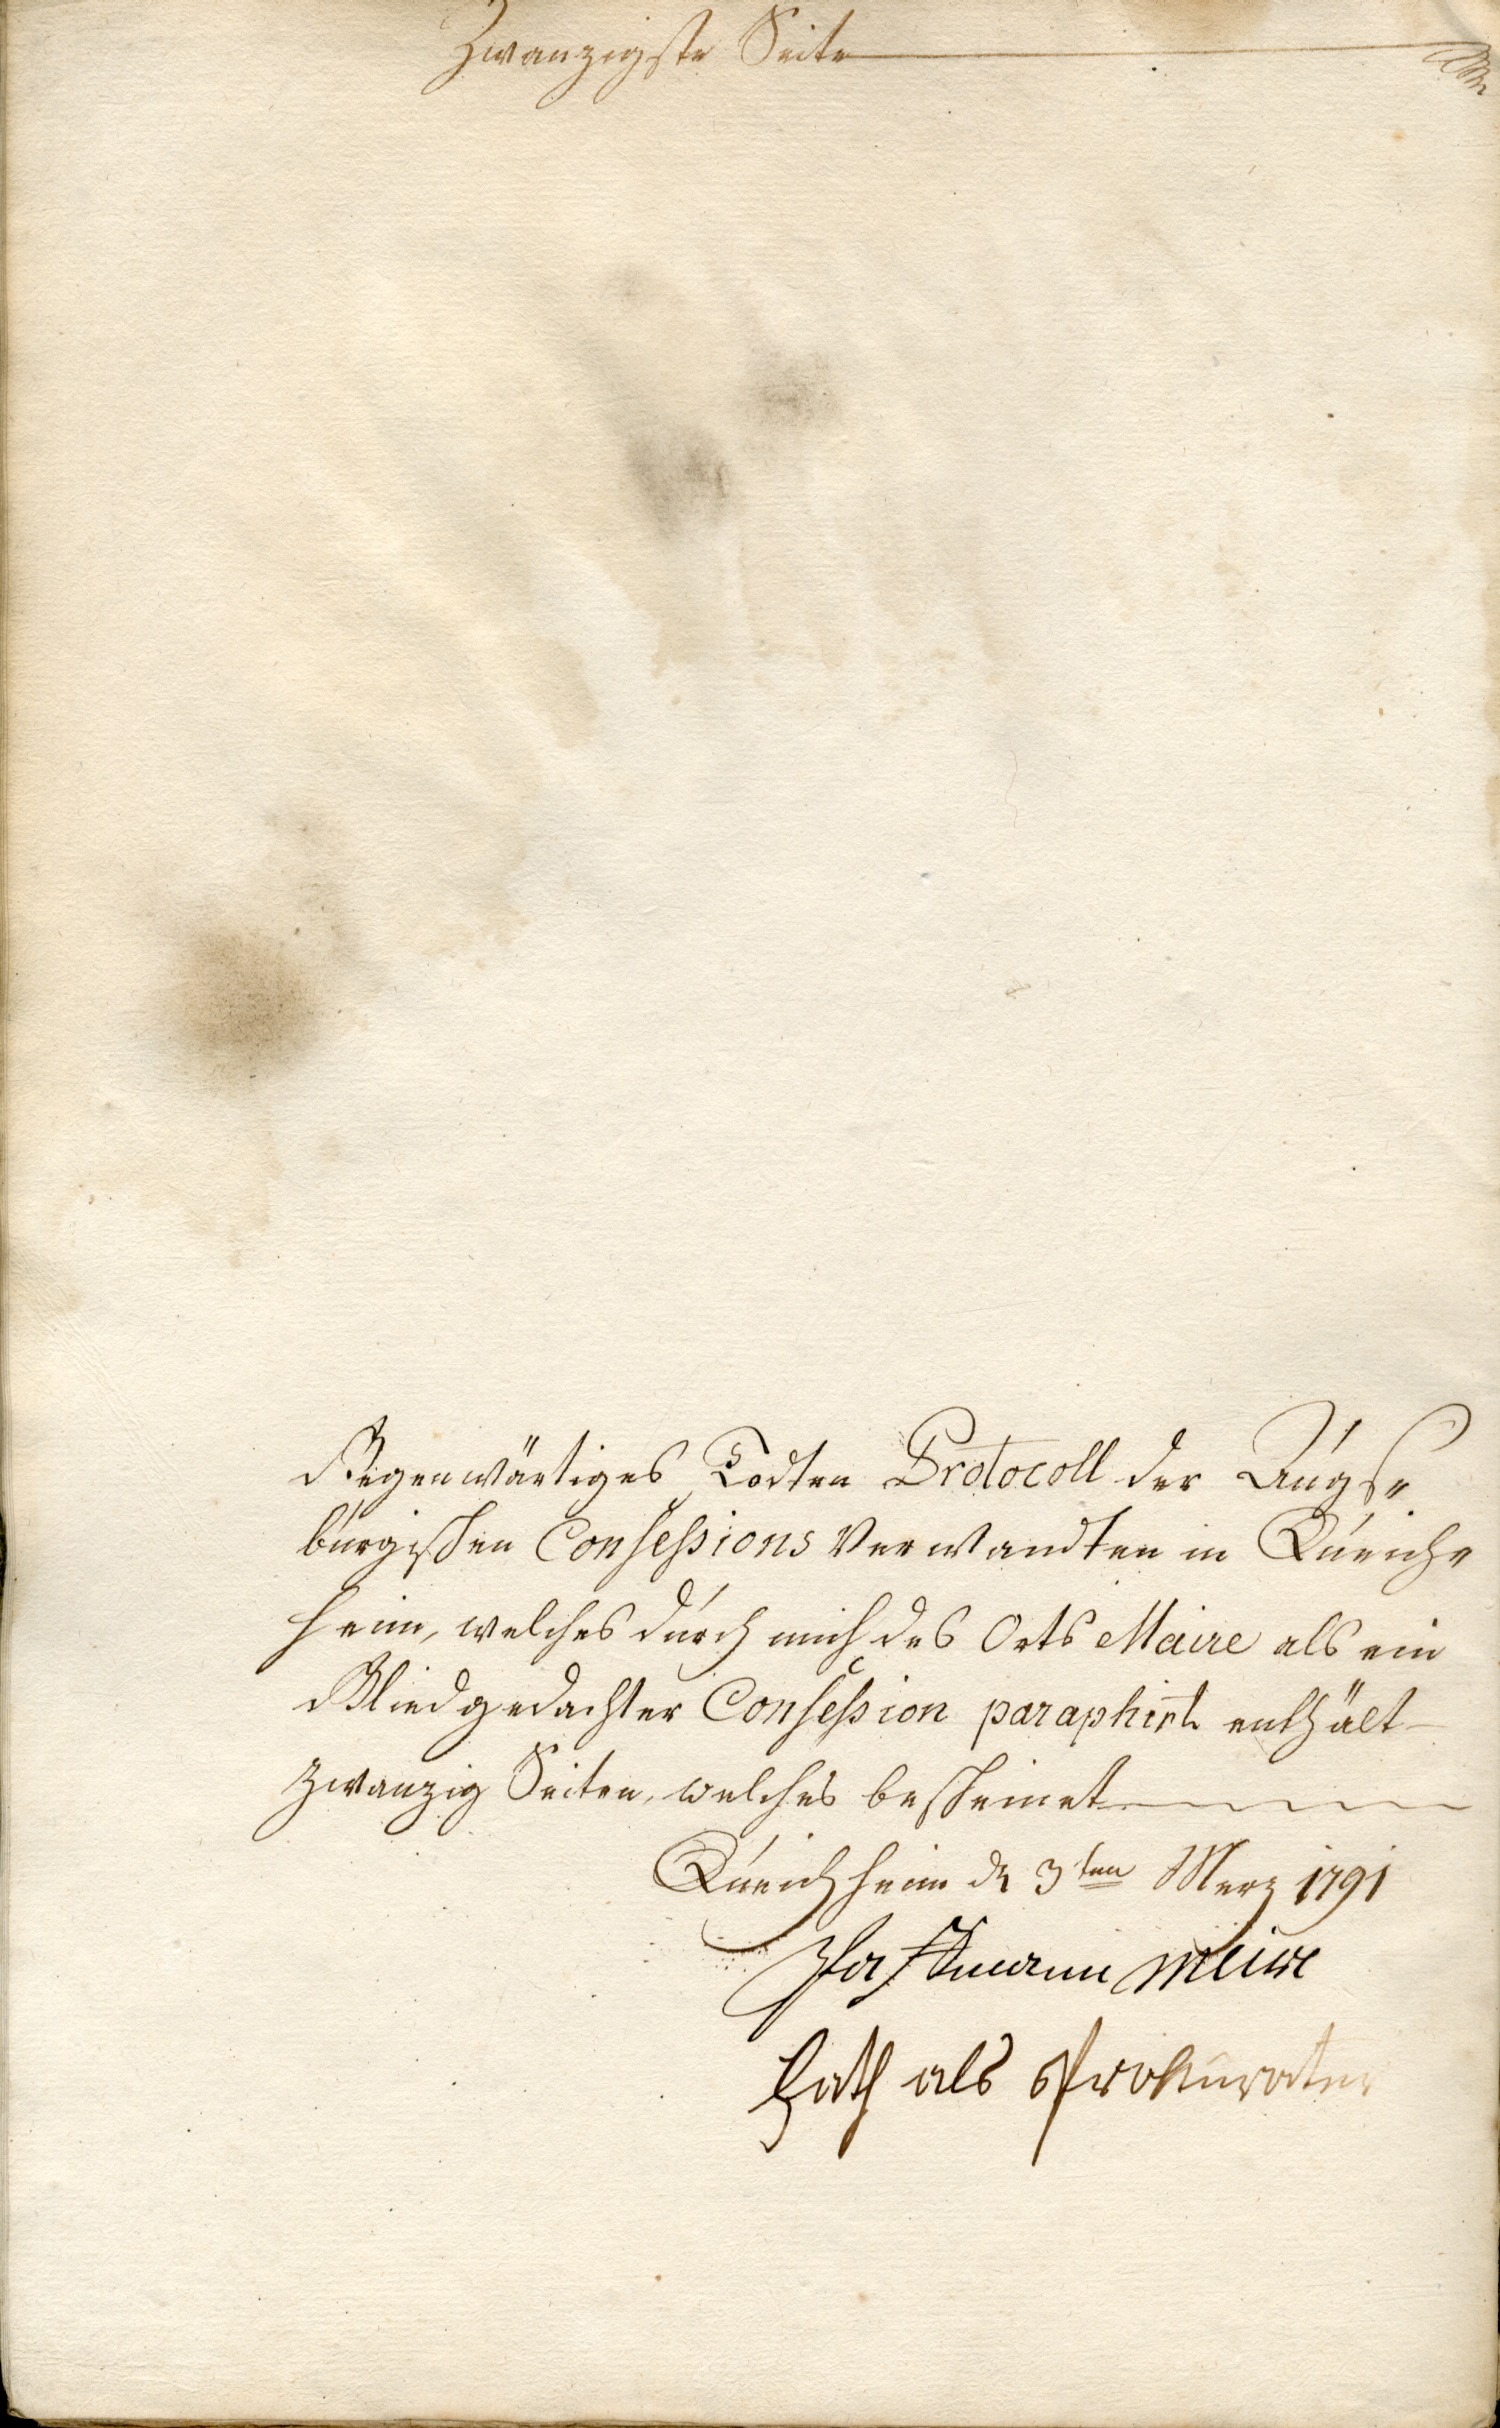 Zwanzigste Seite
Gegenwärtiges Todten Protocoll der Augs„
burgischen Confessions Verwandten in Queich„
heim, welches durch mich des Orts Maire als ein
Glied gedachter Confession paraphirt enthält
zwanzig Seiten, welches bescheinet
Queichheim d 3ten Merz 1791
maire
als Prokurator